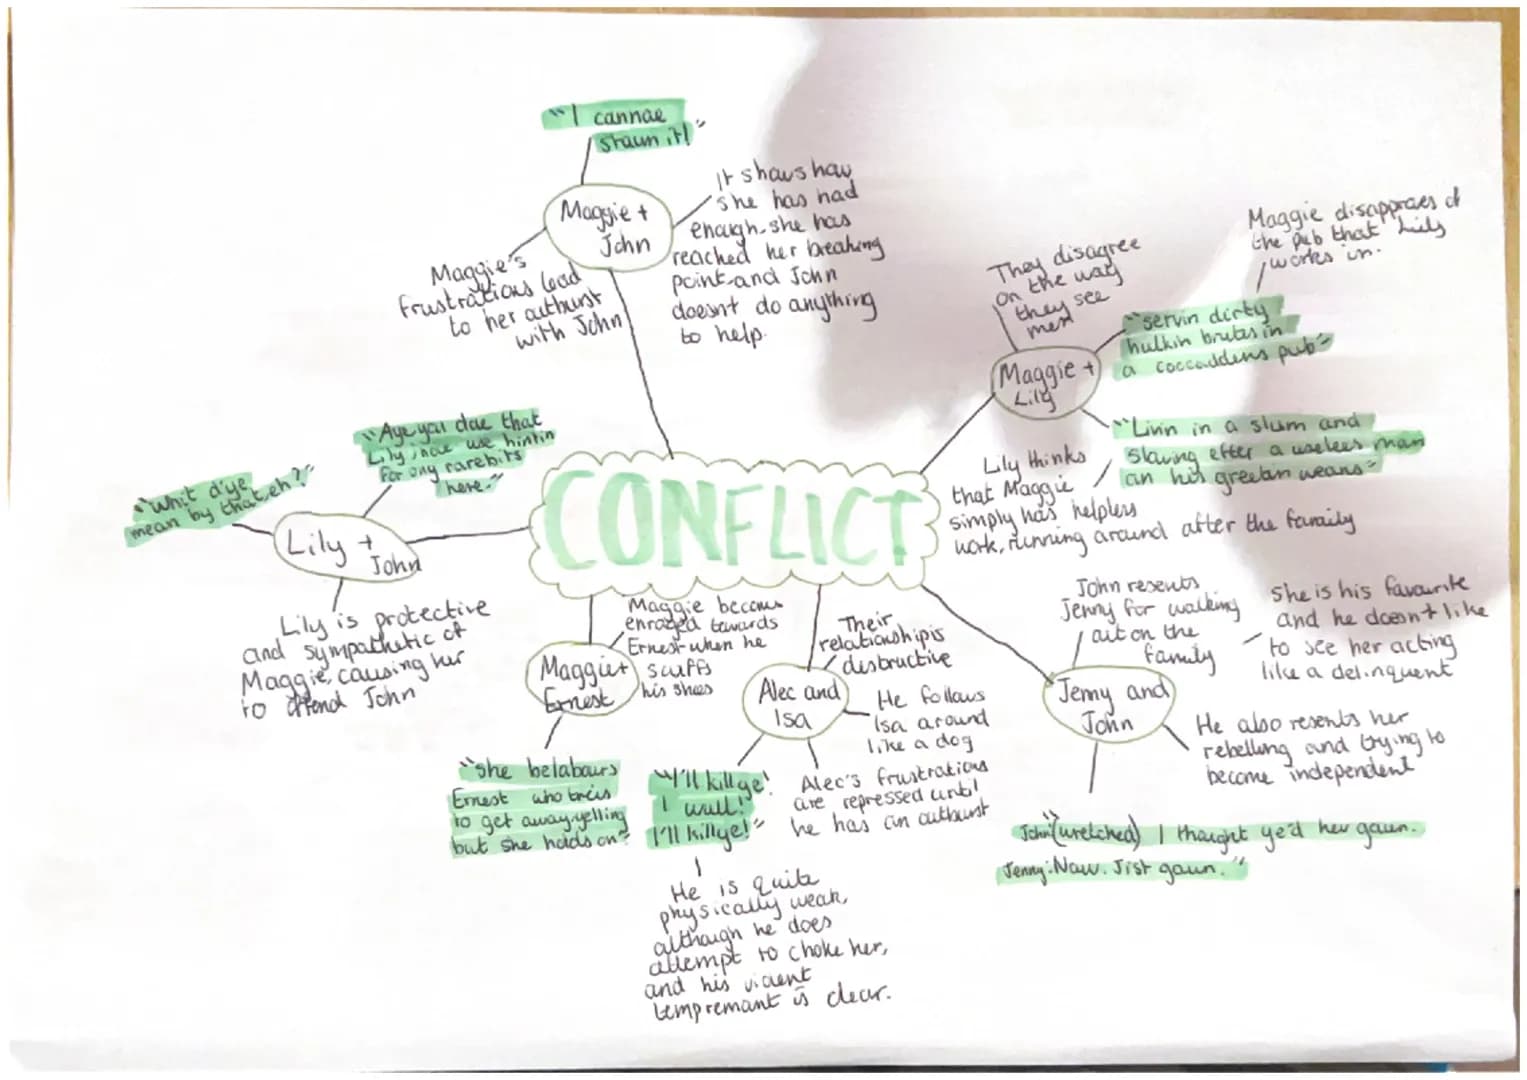 "I cannae
staun it!"
Maggie +
John
It shows how
she has had
enough, she has
reached her breaking
point and John
doesnt do anything
to help.
Maggie's
frustrations lead
to her outburst
with John
They disagree
on the way
they see
men
Maggie disapproves of
the pub that Lily
works in.
Maggie +
Lily
"servin dirty
hulkin brutes in
a coccaddens pub"
"Livin in a slum and
slaving efter a useless man
an his greetan weans"
Lily thinks
that Maggie
simply has helpless
work, running around after the family
"Aye you dae that
Lily, nae use hintin
for ony rarebits
here."
"Whit d'ye
mean by that, eh?"
Lily +
John
Lily is protective
and sympathetic of
Maggie, causing her
to offend John
CONFLICT
Maggie becomes
enraged towards
Ernest when he
scuffs
his shoes
Maggie +
Ernest
"she belabours
Ernest who tries
to get away yelling
but she holds on"
Their
relationship is
destructive
Alec and
Isa
He follows
Isa around
like a dog
Alec's frustrations
are repressed until
he has an outburst
"I'll kill ye!
I wull!
I'll kill ye!"
He is quite
physically weak,
although he does
attempt to choke her,
and his violent
tempremant is clear.
John resents
Jenny for walking
out on the
family
She is his favourite
and he doesn't like
to see her acting
like a delinquent
Jenny and
John
He also resents her
rebelling and trying to
become independent
John "(wretched) I thought ye'd hev gaun.
Jenny: Naw. Jist gaun."